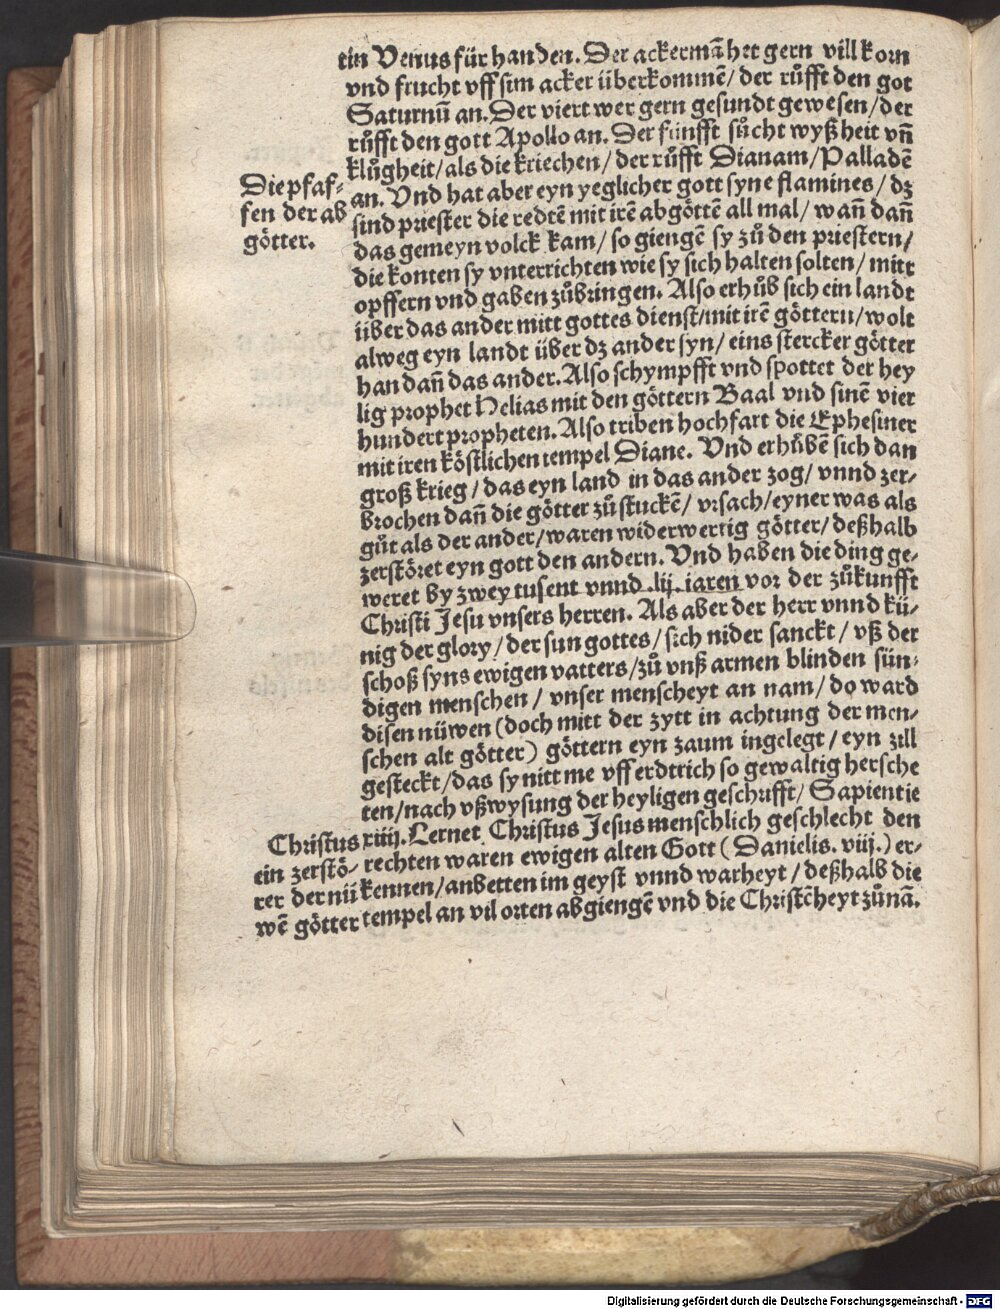 ein Venus für handen. Der ackermā het gern vill korn
vnd frucht vff sim acker überkommē/ der růfft den got
Saturnū an. Der viert wer gern gesundt gewesen/ der
růfft den gott Apollo an. Der fünfft sůcht wyßheit vñ
klůgheit/ als die kriechen/ der růfft Dianam/ Palladē
an. Vnd hat aber eyn yeglicher gott syne flamines/ dz
sind priester die redtē mit irē abgöttē all mal/ wañ dañ
das gemeyn volck kam/ so giengē sy zů den priestern/
die konten sy vnterrichten wie sy sich halten solten/ mitt
opffern vnd gaben zůbringen. Also erhůb sich ein landt
über das ander mitt gottes dienst/ mit irē göttern/ wolt
alweg eyn landt über dz ander syn/ eins stercker götter
han dañ das ander. Also schympfft vnd spottet der hey
lig prophet Helias mit den göttern Baal vnd sinē vier
hundert propheten. Also triben hochfart die Ephesiner
mit iren köstlichen tempel Diane. Vnd erhůbē sich dan
groß krieg/ das eyn land in das ander zog/ vnnd zer-
brochen dañ die götter zů stuckē/ vrsach/ eyner was als
gůt als der ander/ waren widerwertig götter/ deßhalb
zerstöret eyn gott den andern. Vnd haben die ding ge-
weret by zwey tusent vnnd .lij. iaren vor der zůkunfft
Christi Jesu vnsers herren. Als aber der herr vnnd kü-
nig der glory/ der sun gottes/ sich nider sanckt/ vß der
schoß syns ewigen vatters/ zů vnß armen blinden sün-
digen menschen/ vnser menscheyt an nam/ do ward
disen nüwen (doch mitt der zytt in achtung der men-
schen alt götter) göttern eyn zaum ingelegt/ eyn zill
gesteckt/ das sy nitt me vff erdtrich so gewaltig hersche
ten/ nach vßwysung der heyligen geschrifft/ Sapientie
xiiij. Lernet Christus Jesus menschlich geschlecht den
rechten waren ewigen alten Gott (Danielis. viij.) er-
kennen/ anbetten im geyst vnnd warheyt/ deßhalb die
tempel an vil orten abgiengē vnd die Christēheyt zůnā.
Die pfaf-
fen der ab
götter.
Christus
ein zerstö-
rer der nü
wē götter
Digitalisierung gefördert durch die Deutsche Forschungsgemeinschaft - DFG